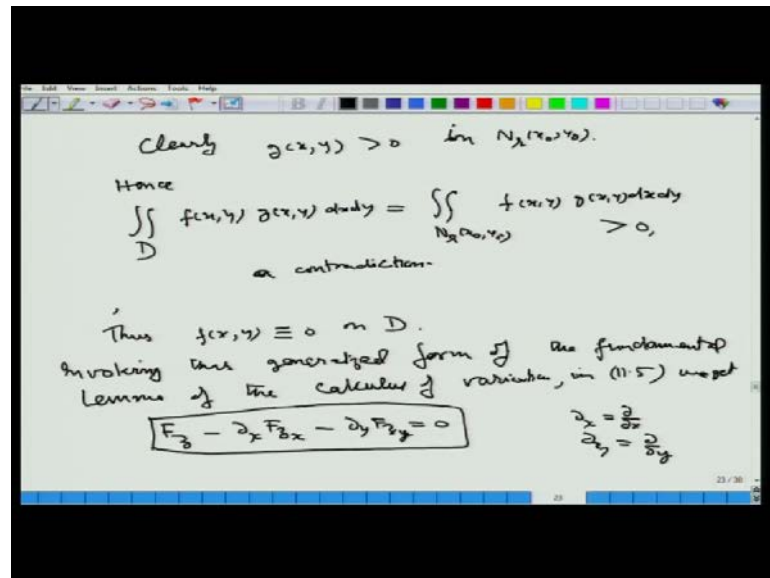 File Edit View Insert Actions Tools Help
Clearly g(x,y) > 0 in N_r(x_0,y_0).
Hence
∬_D f(x,y) g(x,y) dxdy = ∬_{N_r(x_0,y_0)} f(x,y) g(x,y) dxdy > 0,
a contradiction.
Thus f(x,y) ≡ 0 on D.
Invoking this generalized form of the fundamental
Lemma of the calculus of variation, in (11.5) we get
F_z - ∂_x F_{z_x} - ∂_y F_{z_y} = 0
∂_x = ∂/∂x
∂_y = ∂/∂y
23 / 30
23